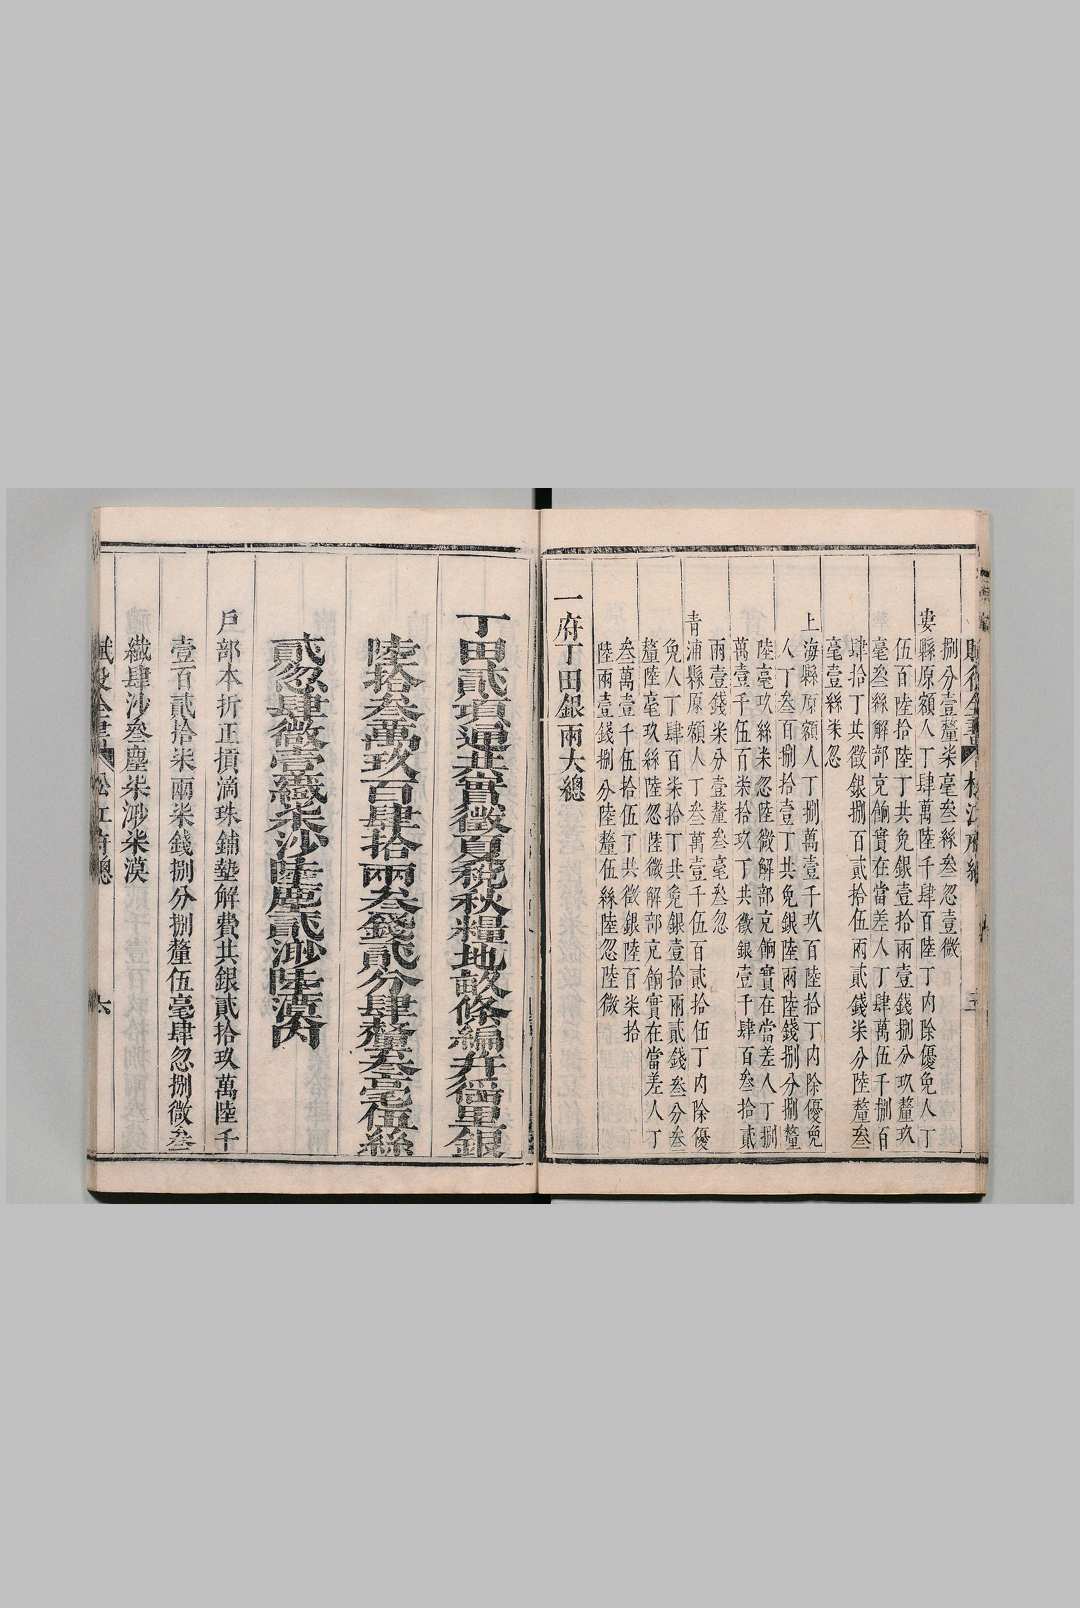 捌分壹釐柒毫叁絲叁忽壹微
婁縣原額人丁肆萬陸千肆百陸丁內除優免人丁
伍百陸拾陸丁共免銀壹拾兩壹錢捌分玖釐玖
毫叁絲解部充餉實在當差人丁肆萬伍千捌百
肆拾丁共徵銀捌百貳拾伍兩貳錢柒分陸釐叁
毫壹絲柒忽
上海縣原額人丁捌萬壹千玖百陸拾丁內除優免
人丁叁百捌拾壹丁共免銀陸兩陸錢捌分捌釐
陸毫玖絲柒忽陸微解部充餉實在當差人丁捌
萬壹千伍百柒拾玖丁共徵銀壹千肆百叁拾貳
兩壹錢柒分壹釐叁毫叁忽
青浦縣原額人丁叁萬壹千伍百貳拾伍丁內除優
免人丁肆百柒拾丁共免銀壹拾兩貳錢叁分叁
釐陸毫玖絲陸忽陸微解部充餉實在當差人丁
叁萬壹千伍拾伍丁共徵銀陸百柒拾
陸兩壹錢捌分陸釐伍絲陸忽陸微
一府丁田銀兩大總
丁田貳項通共實徵夏稅秋糧地畝條編幷徭里銀
陸拾叁萬玖百肆拾兩叁錢貳分肆釐叁毫伍絲
貳忽肆微壹纖柒沙陸塵貳渺陸漠內
戶部本折正損滴珠鋪墊解費共銀貳拾玖萬陸千
壹百貳拾柒兩柒錢捌分捌釐伍毫肆忽捌微叁
纖肆沙叁塵柒渺柒漠
賦役全書 松江府總 六